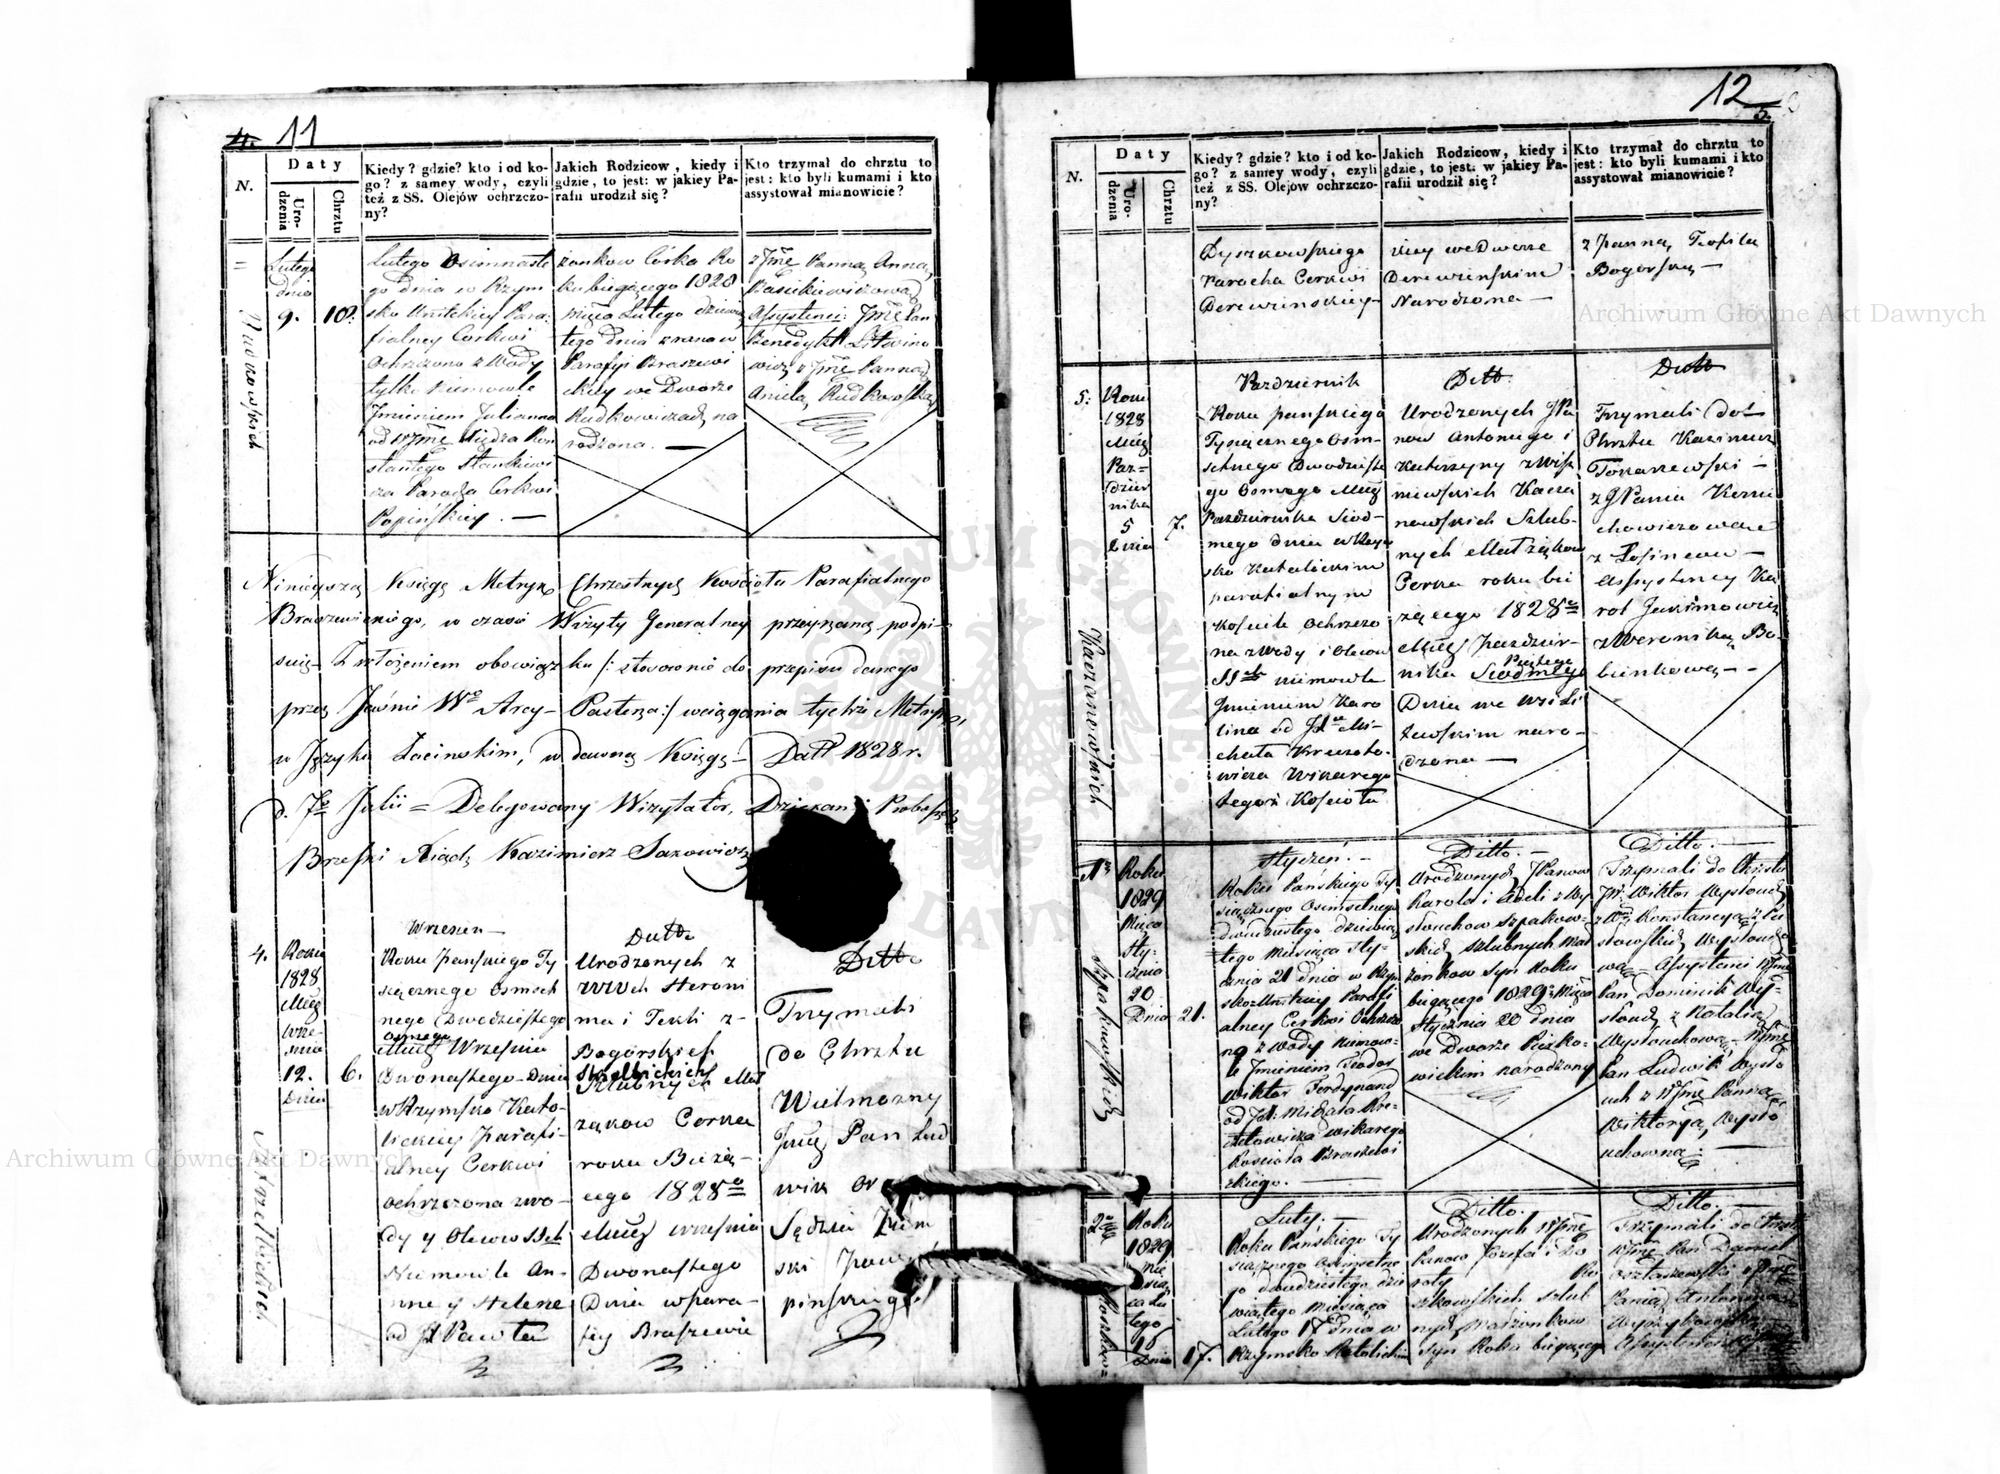 4. 11
N.
Daty
Uro-
dzenia
Chrztu
Kiedy? gdzie? kto i od ko-
go? z samey wody, czyli
też z SS. Olejów ochrzczo-
ny?
Jakich Rodzicow, kiedy i
gdzie, to jest: w jakiey Pa-
rafii urodził się?
Kto trzymał do chrztu to
jest: kto byli kumami i kto
assystował mianowicie?
=
Rudkowskich
Lutego
dnia
9.
10.
Lutego Osimnaste
go dnia w Rzym
sko Unitskiey Para:
fialney Cerkwi
Ochrzczona z Wody
tylko Niemowle
Jmieniem Julianna
od Xiędza Kon
stantego Stankiewi
cza Parocha Cerkwi
Popińskiey. —
żonkow Córka Ro
ku bieżącego 1828
Mięca Lutego dziewią
tego dnia z rana w
Parafji Braszewi
ckiey we Dworze
Rudkowiczach na
rodzona. —
z Jmę Panną Anną
Wasilkiewiczowną
Assystenci: Jmę Pan
Benedykt Litwino
wicz z Jmę Panną
Anielą Rudkowską
Ninieyszą Księgę Metryk Chrzestnych Kościoła Parafialnego
Braszewickiego, w czasie Wizyty Generalney przeyrzaną podpi-
suię- Z włożeniem obowiązku /: stosownie do przepisu danego
przez Jaśnie Wo Arcy- Pasterza:/ wciągania tychże Metryk,
w Języku Łacinskim, w dawną Księgę- Datt 1828 r.
d. 7o Julii = Delegowany Wizytator, Dziekan i Proboszcz
Brzeski Xiądz Kazimierz Sakowicz
4.
Roku
1828
Mieę
Wrze-
snia
12.
Dnia
6.
Wrzesien —
Roku Pańskiego Ty
siącznego Osmset
nego Dwudziestego
osmego
Mieę Września
Dwonastego Dnia
w Rzymsko Kato-
lickiey Parafi-
alney Cerkwi
ochrzczona z wo-
dy y Olejow SSch
Niemowle An-
nne y Helene
od Jx Pawła
Ditto
Urodzonych z
WWch Heroni
ma i Tekli z-
Bogorskich
Strzelbickich
Szlubnych Mał
ząkow Corka
roku Bieżą-
cego 1828o
Mieę Września
Dwonastego
Dnia w para-
fiy Braszewic
Ditto
Trzymali
do Chrztu
Wielmozny
Jmę Pan Lud
wik Or
Sędzia Ziem
ski Pow
pinskiego
Strzelbickich
12
5.
N.
Daty
Uro-
dzenia
Chrztu
Kiedy? gdzie? kto i od ko-
go? z samey wody, czyli
też z SS. Olejów ochrzczo-
ny?
Jakich Rodzicow, kiedy i
gdzie, to jest: w jakiey Pa-
rafii urodził się?
Kto trzymał do chrztu to
jest: kto byli kumami i kto
assystował mianowicie?
Dyszkowskiego
Parocha Cerkwi
Derewinskiey-
kiey we Dworze
Derewinskim
Narodzona —
z Panną Teofila
Bogorską —
5.
Roku
1828
Mieę
Paz=
dzier
nika
5
Dnia
7.
Kaczanowskich
Pazdziernik
Roku pańskiego
Tysiącznego Osm-
setnego Dwudzieste
go Osmego Mieę
Pazdziernika Siod-
mego dnia w Rzym
sko Katolickim
parafialnym
Kosciele Ochrzczo
na z Wody i Olejow
SSch niemowle
Jmieniem Karo
lina od Jx Mi-
chała Krzczoto-
wicza Wikarego
tegoż Kościoła
Ditto
Urodzonych JPa
now Antoniego i
Katarzyny z Wisz
niewskich Kacza
nowskich Szlub-
nych Małżąkow
Corka roku bie
żącego 1828o
Mieę pazdzier-
nika Siodmego
Piątego
Dnia we Wsi
naro-
dzona —
Ditto
Trzymali do
Chrztu Kazimierz
Tokarzewski —
z JPania Kornu
chowiczowa
z Łosincow —
Assystenci Ka
rol Jakimowicz
z Weroniką Bo-
bienkową — -
Nr
Roku
1829
Mięca
Sty-
cznia
20
Dnia
21.
Szpakowskich
Styczeń. —
Roku Pańskiego Ty
siącznego Osimsetnego
dwudziestego dziewią
tego Miesiąca Sty-
cznia 21 dnia w Rzym
sko: Unitskiey Parafi
alney Cerkwi Ochrzczo
ny z Wody Niemow-
le Jmieniem Teodor
Wiktor Ferdynand
od Jx: Michała Krz-
czotowicza Wikarego
Kościoła Braszewi
ckiego. —
Ditto. —
Urodzonych JPanow
Karola i Adeli z Wy
słouchow Szpakow-
skich szlubnych Mał
żonkow Syn Roku
bieżącego 1829 Mięca
Stycznia 20 dnia
we Dworze
wickim narodzony
Ditto. —
Trzymali do Chrztu
Jx: Wiktor Wysłouch
z Konstancyą
Wysłoucho
wą Assystenci Wjmę
Pan Dominik Wys-
łouch z Natalią
Wysłouchową, Wjmę
Pan Ludwik Wysło
uch z Wjmę Panną
Wiktoryą Wysło
uchowną —
2
Roku
1829
mie
siąca Lu
tego
16
Dnia
17.
Luty. —
Roku Pańskiego Ty
siącznego Osimsetne
go dwudziestego dzie
wiątego Miesiąca
Lutego 17 dnia w
Rzymsko Katolickim
Ditto. —
Urodzonych Wjmę
Panow Józefa i Do
roty Ro
szkowskich szlub
nych Małżonkow
Syn Roku bieżącego
Ditto. —
Trzymali do Chrztu
Wjmę Pan Daniel
Osztaszewski z Wjmę
Panią Antoniną
Wyrzykowską
Assystenci
Archiwum Główne Akt Dawnych
Archiwum Główne Akt Dawnych
ARCHIWUM GŁÓWNE
DAWN